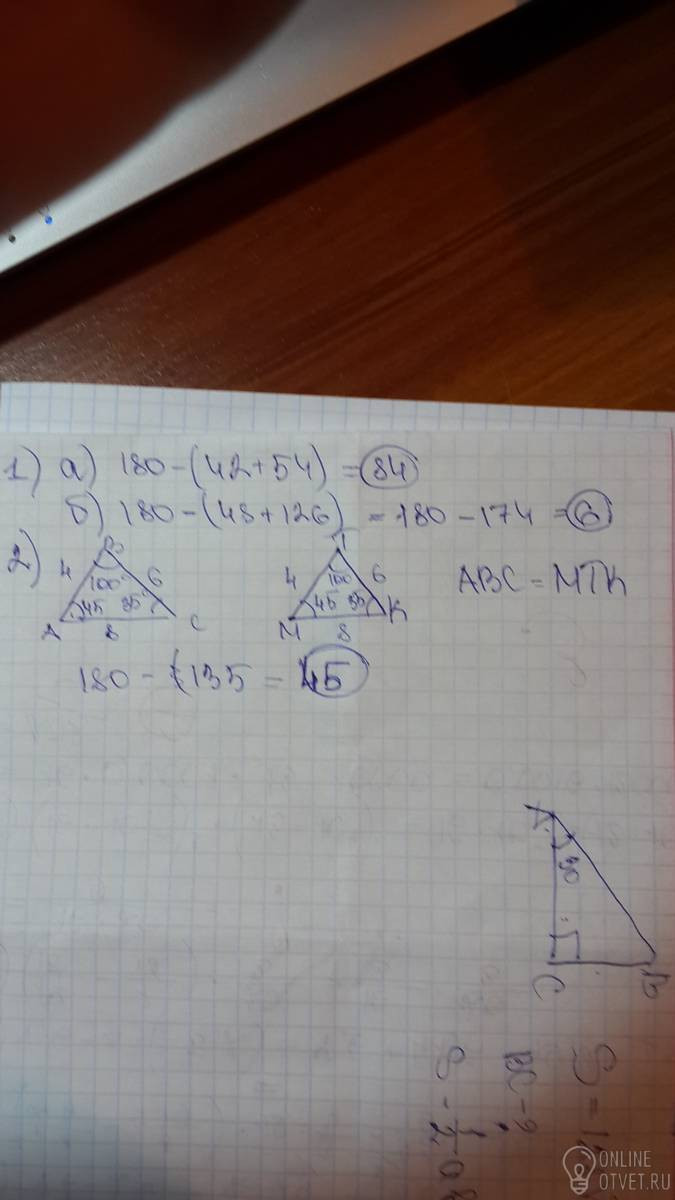 1) а) 180-(42+54) = 84
б) 180-(48+126) = 180-174 = 6
2)
B
4 100° 6
A 45 35° C
8
T
4 100 6
M 45 35 K
8
ABC = МТК
180 - 135 = 45
A
30
C B
S = 1
BC - ?
S - 1/2
ONLINE
OTVET.RU